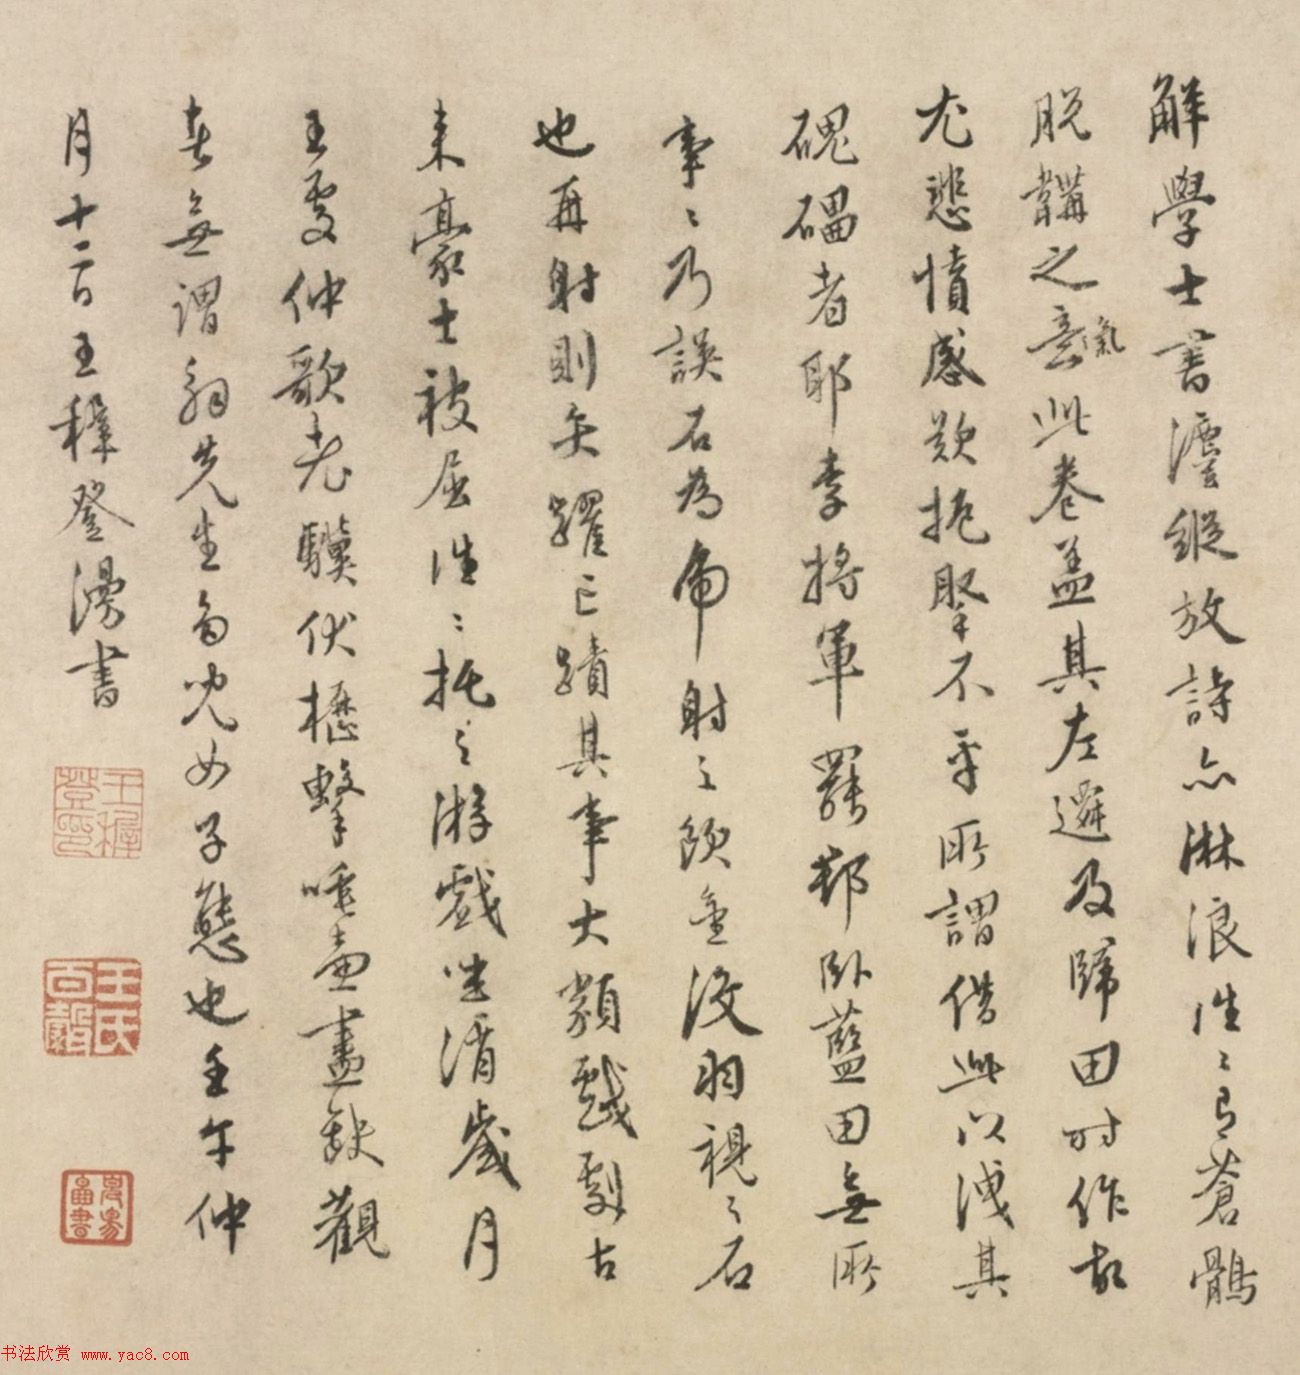 解學士書灋縱放詩亦淋浪往〻有蒼鶻
脫韝之意氣此卷蓋其左遷及歸田時作故
尤悲憤感欷扼掔不平所謂借此以洩其
磈礧者耶李將軍罷郡臥藍田無所
事〻乃誤石為虎射之飲金沒羽視之石
也再射則矢躍已蹟其事大類戲劇古
來豪士被屈往〻托之游戲坐消歲月
王處仲歌老驥伏櫪擊唾壺盡缺觀
者無謂解先生為兒女子態也壬午仲
月十二日王穉登漫書
王穉登印
王氏百穀
书法欣赏 www.yac8.com